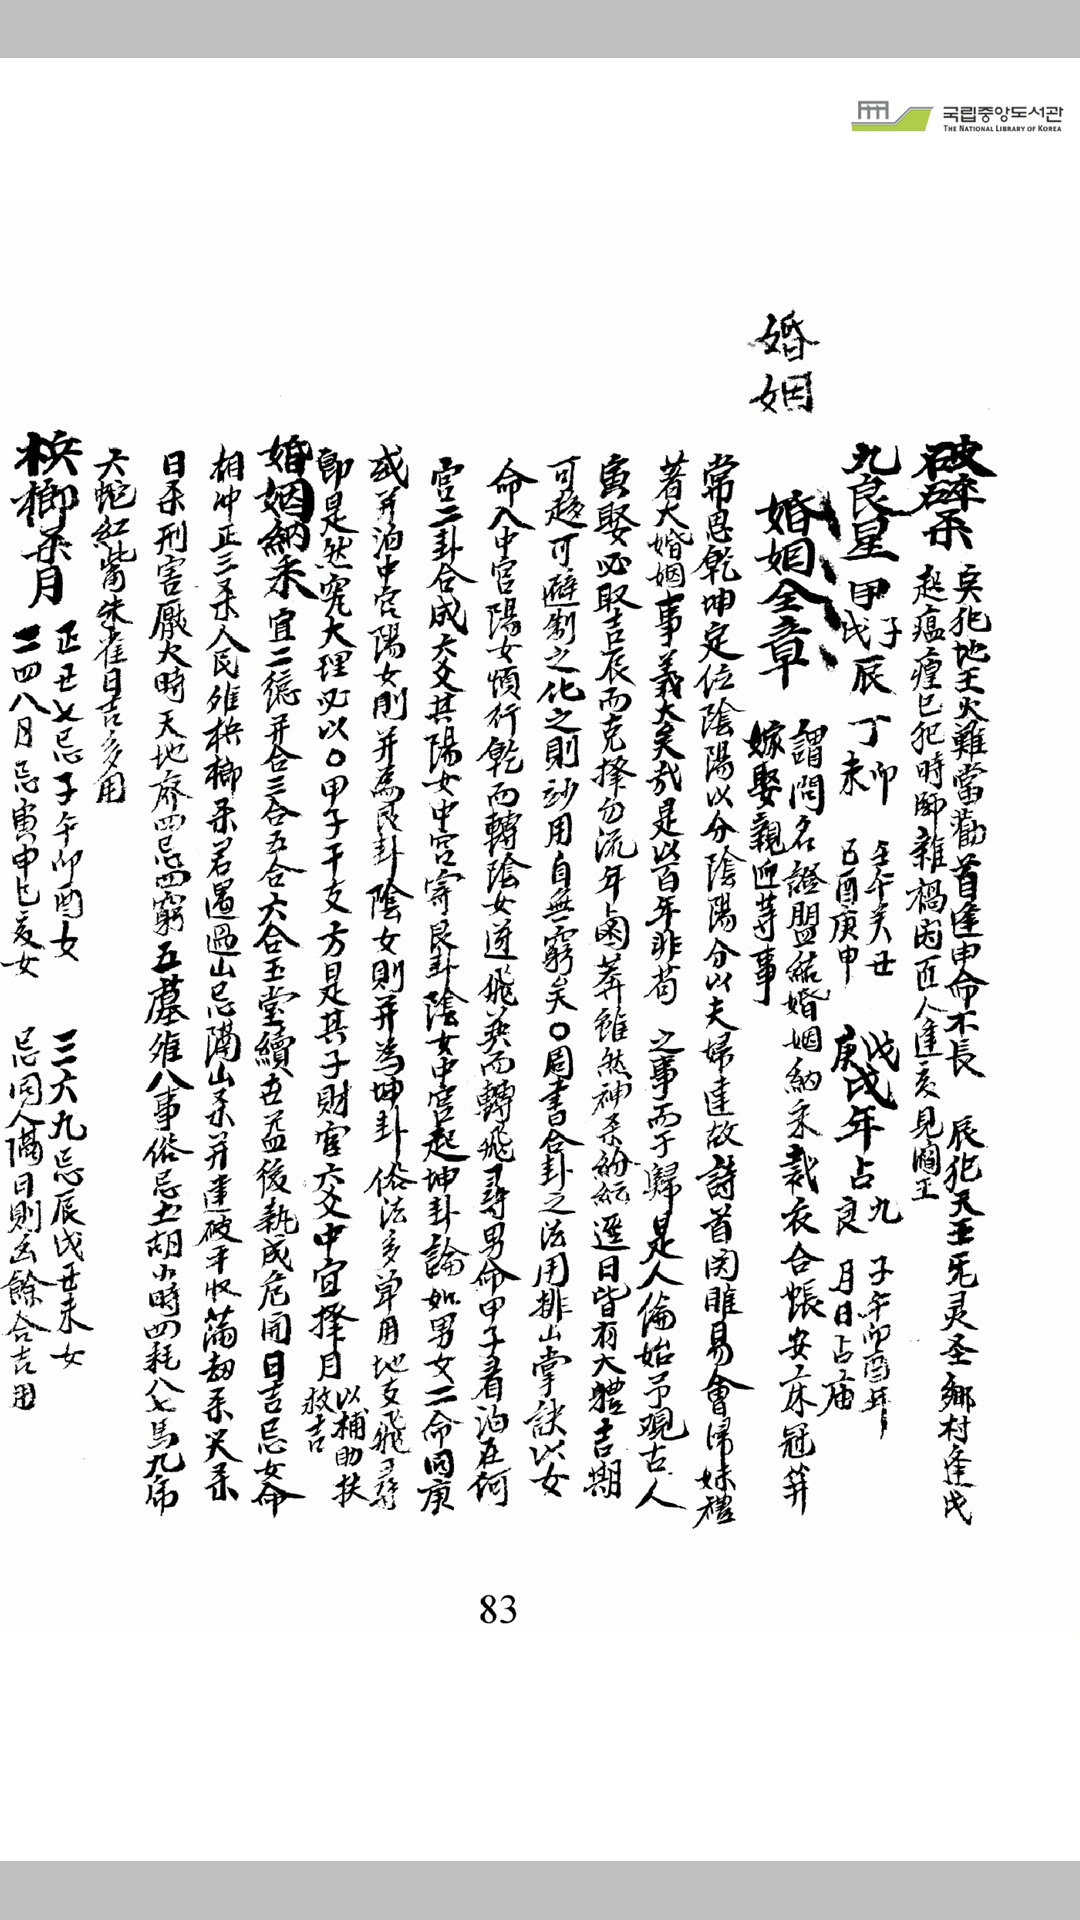 국립중앙도서관
THE NATIONAL LIBRARY OF KOREA
婚姻
破碎杀
亥犯地王火難當勸首逢申命不長 辰犯天王死灵圣鄉村逢戌
起瘟瘽巳犯時師雜禍因匠人逢亥見閻王
九良星 甲子戊辰 丁卯 未 壬午癸丑 己酉庚申 戊戌庚戌年占九良 子午卯酉年 月日占庙
婚姻全章 謂問名證盟結婚姻納采裁衣合帳安床冠笄
嫁娶親迎䓁事
常思乾坤定位陰陽以分陰陽分以夫婦逹故詩首関雎易會帰妹禮
著大婚姻事義大矣哉是以百年非苟 之事而于歸是人倫始予观古人
寅娶必取吉辰而克擇勿流年鹵莽雖然神杀紛紜選日皆有大體吉期
可趋可避制之化之則妙用自無窮矣〇周書合卦之法用排山掌訣以女
命入中宫陽女順行乾而轉陰女逆飛巽而轉飛尋男命甲子看泊在何
宫二卦合成六爻其陽女中宫寄艮卦陰女中宫起坤卦論如男女二命同庚
或并泊中宫陽女則并為艮卦陰女則并為坤卦俗法多单用地支飛尋
即是然究大理必以〇甲子干支方是其子財官六爻中宜擇月以補助扶救吉
婚姻納采 宜二德并合三合五合六合玉堂續世益後執成危開日吉忌女命
相冲正三杀人民雉梹榔杀若遇過山忌隔山杀并建破平收滿刼杀災杀
日杀刑害厭火時天地废四忌四窮五墓雉八事俗忌土胡小時四耗八七馬九帍
天蛇紅嘴朱雀日吉多用
梹榔杀月 正五七忌子午卯酉女 三六九忌辰戌丑未女
二四八月忌寅申巳亥女 忌同人隔日則凶餘合吉用
83